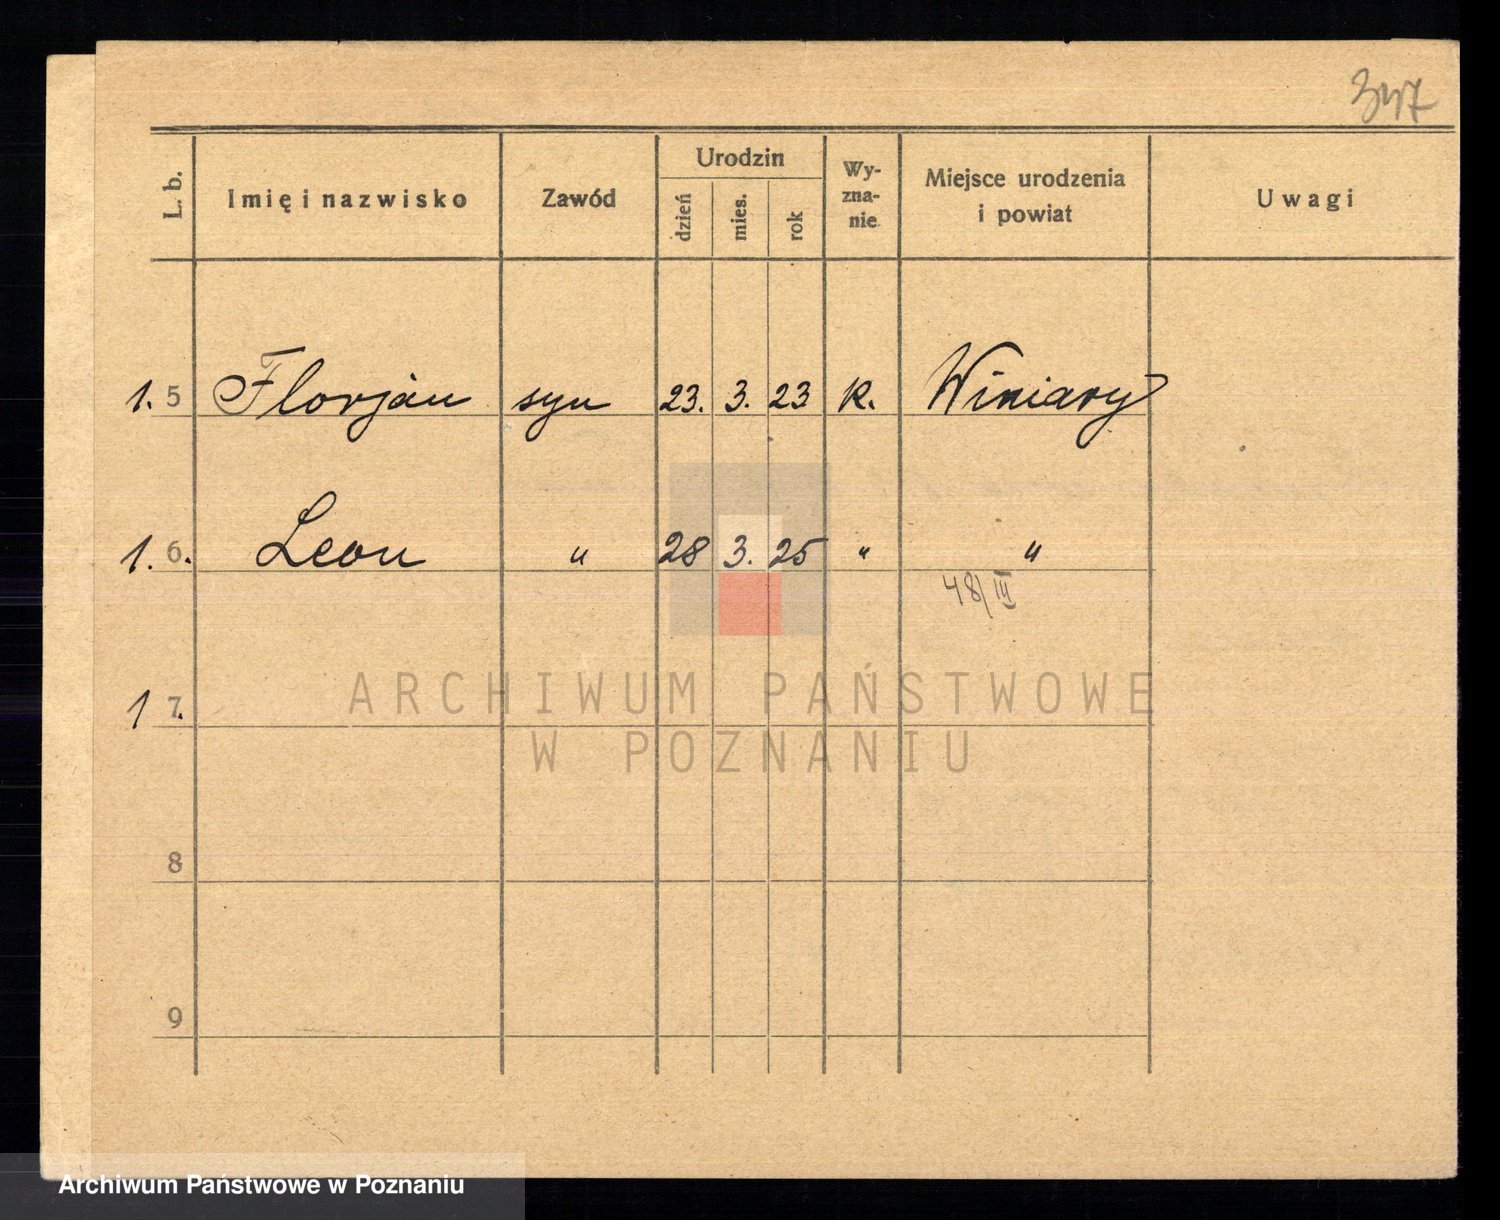 347
L. b. Imię i nazwisko Zawód Urodzin dzień mies. rok Wy- zna- nie Miejsce urodzenia i powiat Uwagi
1. 5 Florján syn 23. 3. 23 k. Winiary
1. 6. Leon " 28 3. 25 " "
48/III
1 7.
ARCHIWUM PAŃSTWOWE
W POZNANIU
8
9
Archiwum Państwowe w Poznaniu